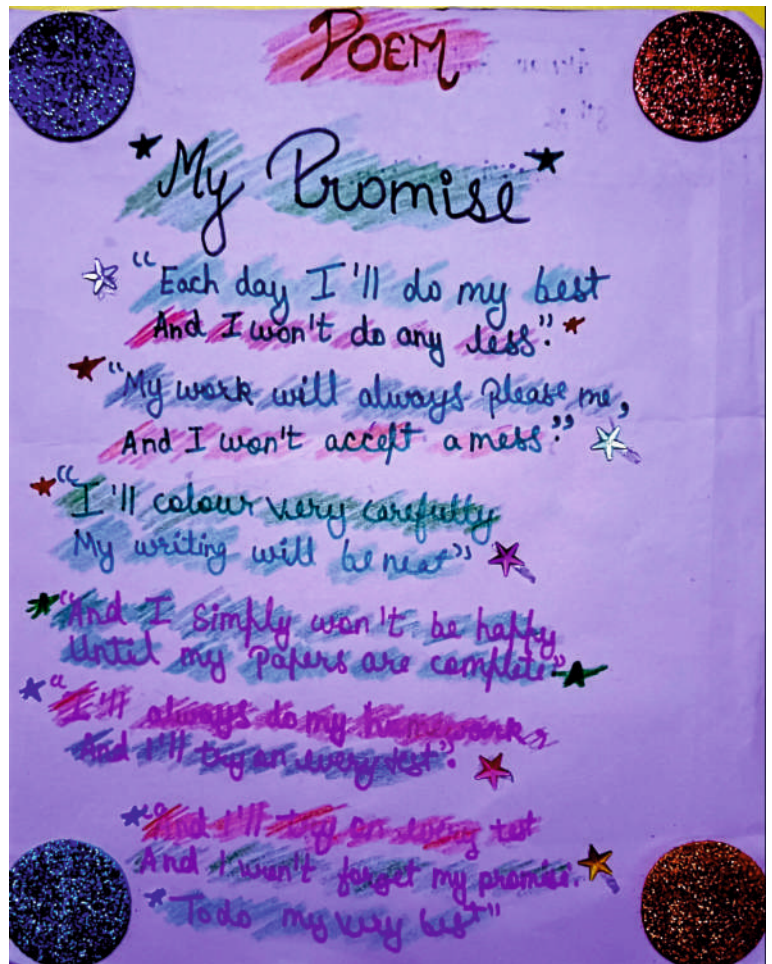 POEM
My Promise
"Each day I'll do my best
And I won't do any less".
"My work will always please me,
And I won't accept a mess."
"I'll colour very carefully
My writing will be neat"
"And I simply won't be happy
Until my papers are complete"
"I'll always do my homework
And I'll try on every test".
"And I'll try on every test
And I won't forget my promise.
"To do my very best"